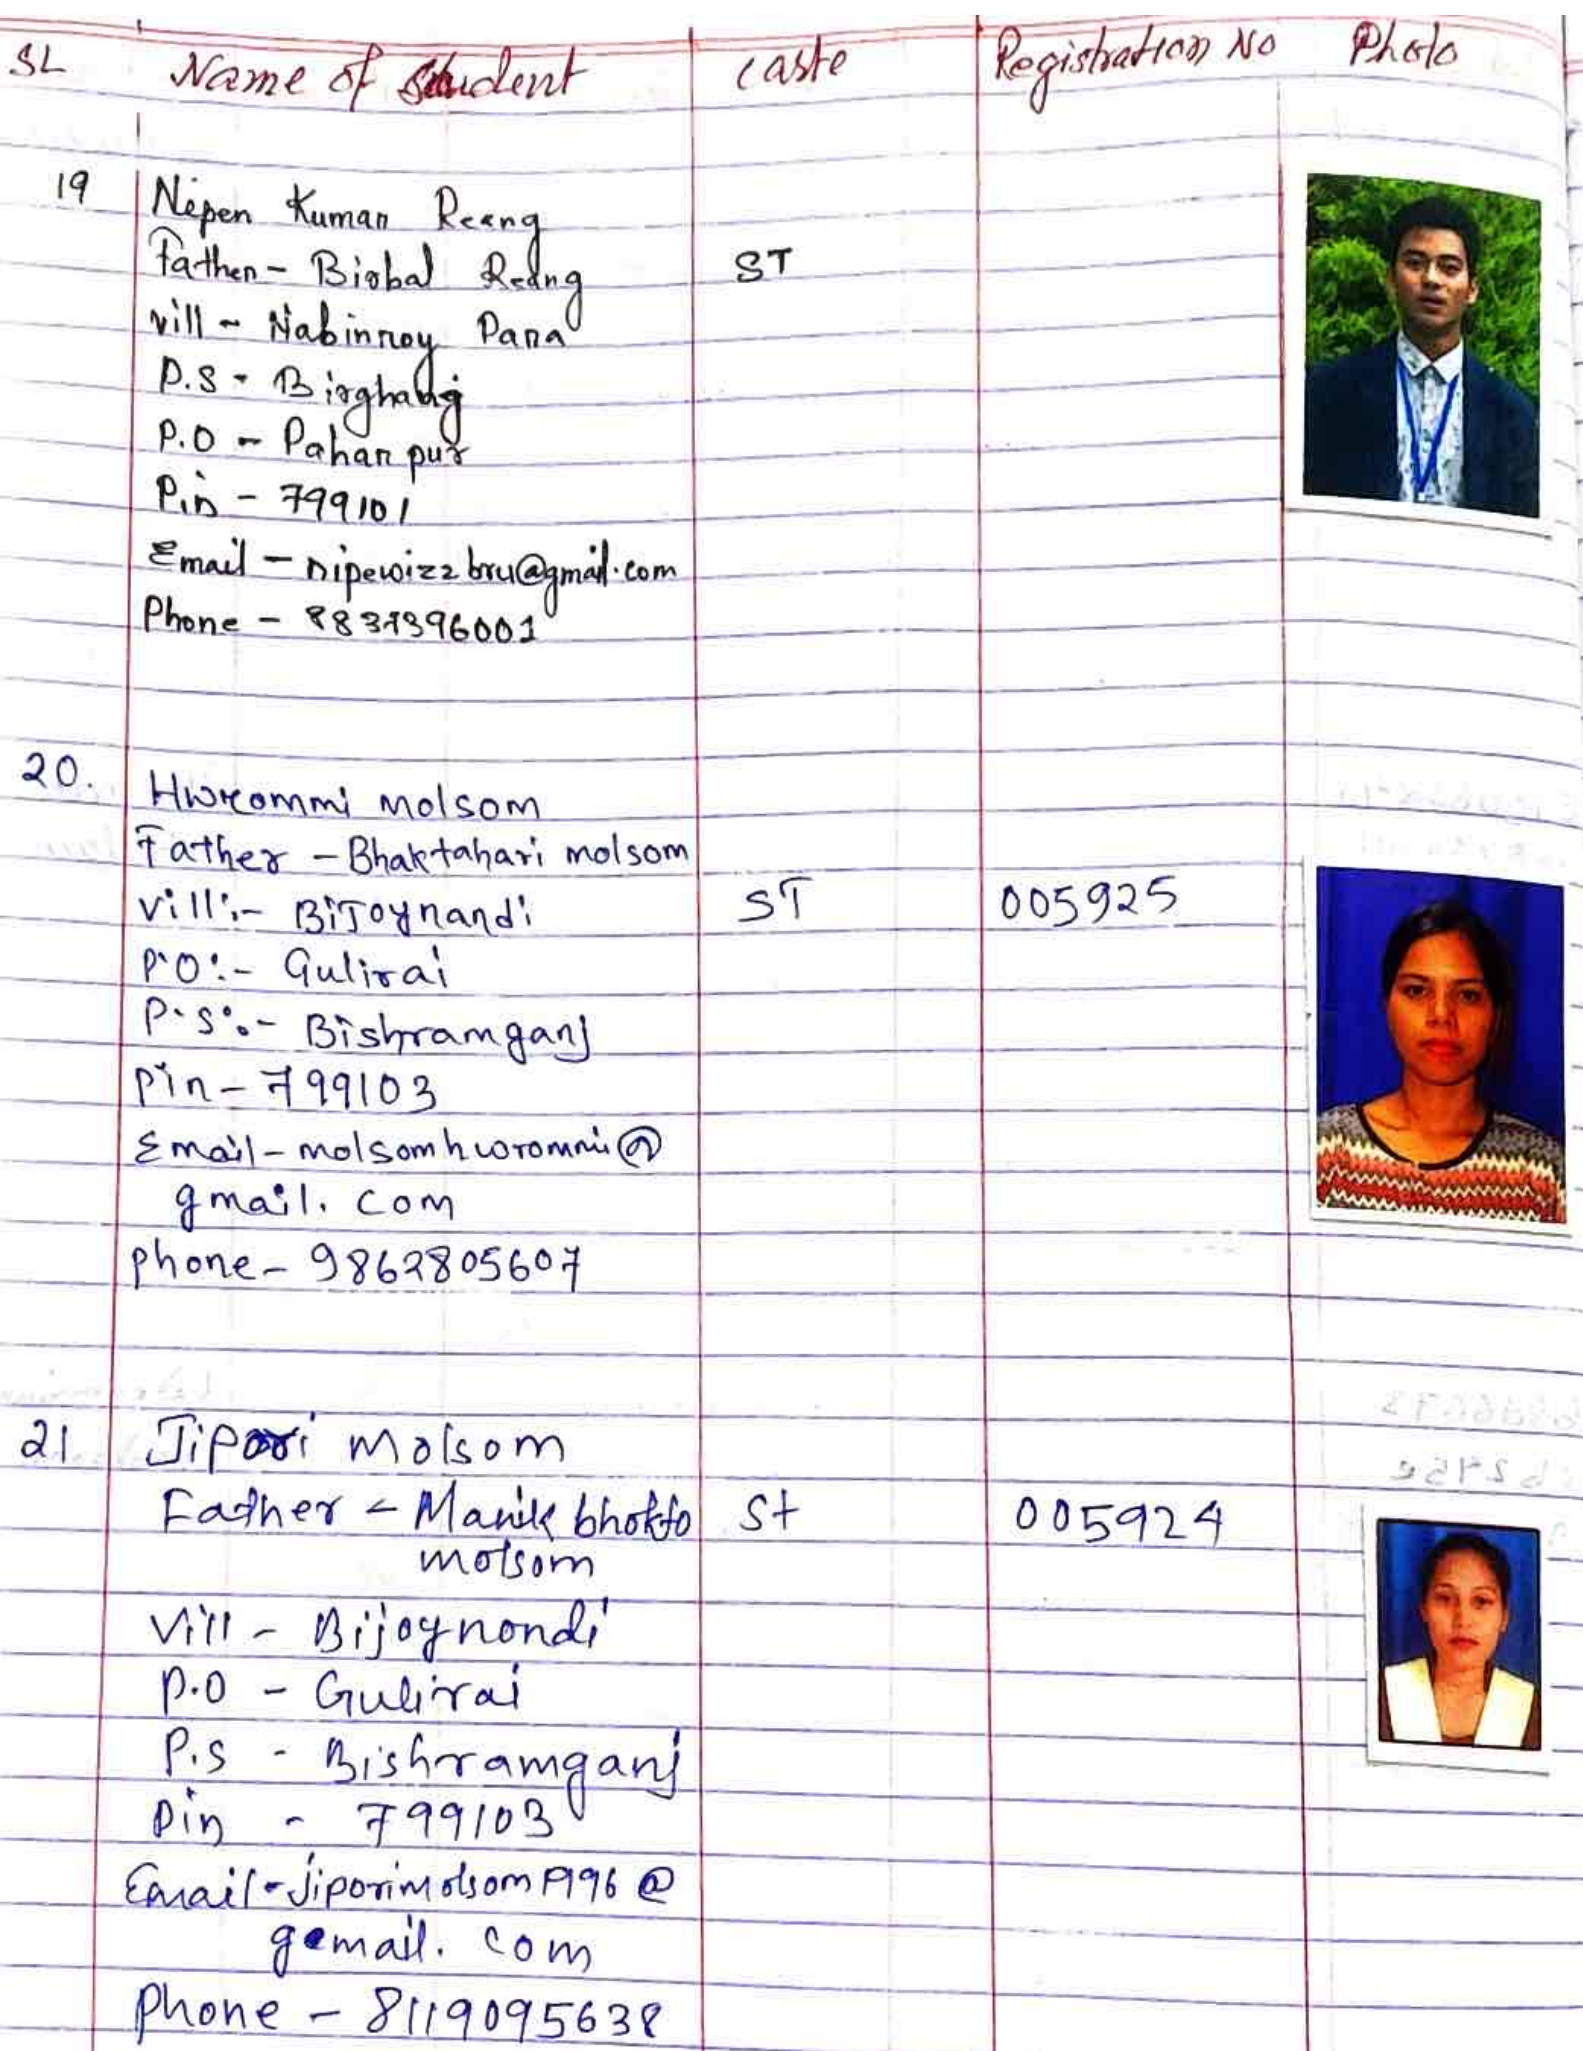 SL Name of Student Caste Registration No Photo
19 Nipen Kumar Reang
Father- Birbal Reang ST
vill - Nabinroy Para
P.S - Birghanj
P.O - Paharpur
Pin - 799101
Email - nipewizzbru@gmail.com
Phone - 8837396001
20. Hwrommi Molsom
Father - Bhaktahari molsom
Vill:- BiJoynandi ST 005925
P.O:- Gulirai
P.S:- Bishramganj
Pin - 799103
Email - molsomhwrommi@
gmail. com
phone - 9862805607
21 Jipori Molsom
Father - Manik bhokto St 005924
molsom
Vill - Bijoynondi
P.O - Gulirai
P.S - Bishramganj
Pin - 799103
Email - Jiporimolsom1996@
gemail. com
Phone - 8119095638